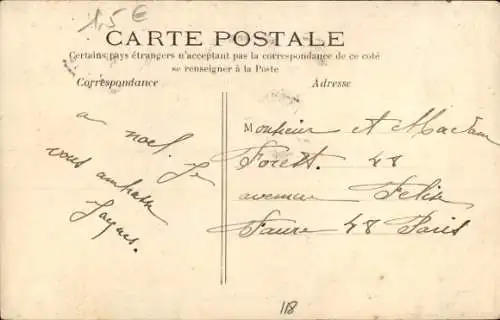 1,5€
CARTE POSTALE
Certains pays étrangers n'acceptant pas la correspondance de ce coté
se renseigner à la Poste
Correspondance
Adresse
a noel. Je
vous embrasse
Jacques.
Monsieur et Madame
Forest. 48
avenue Felix
Faure 48 Paris
118